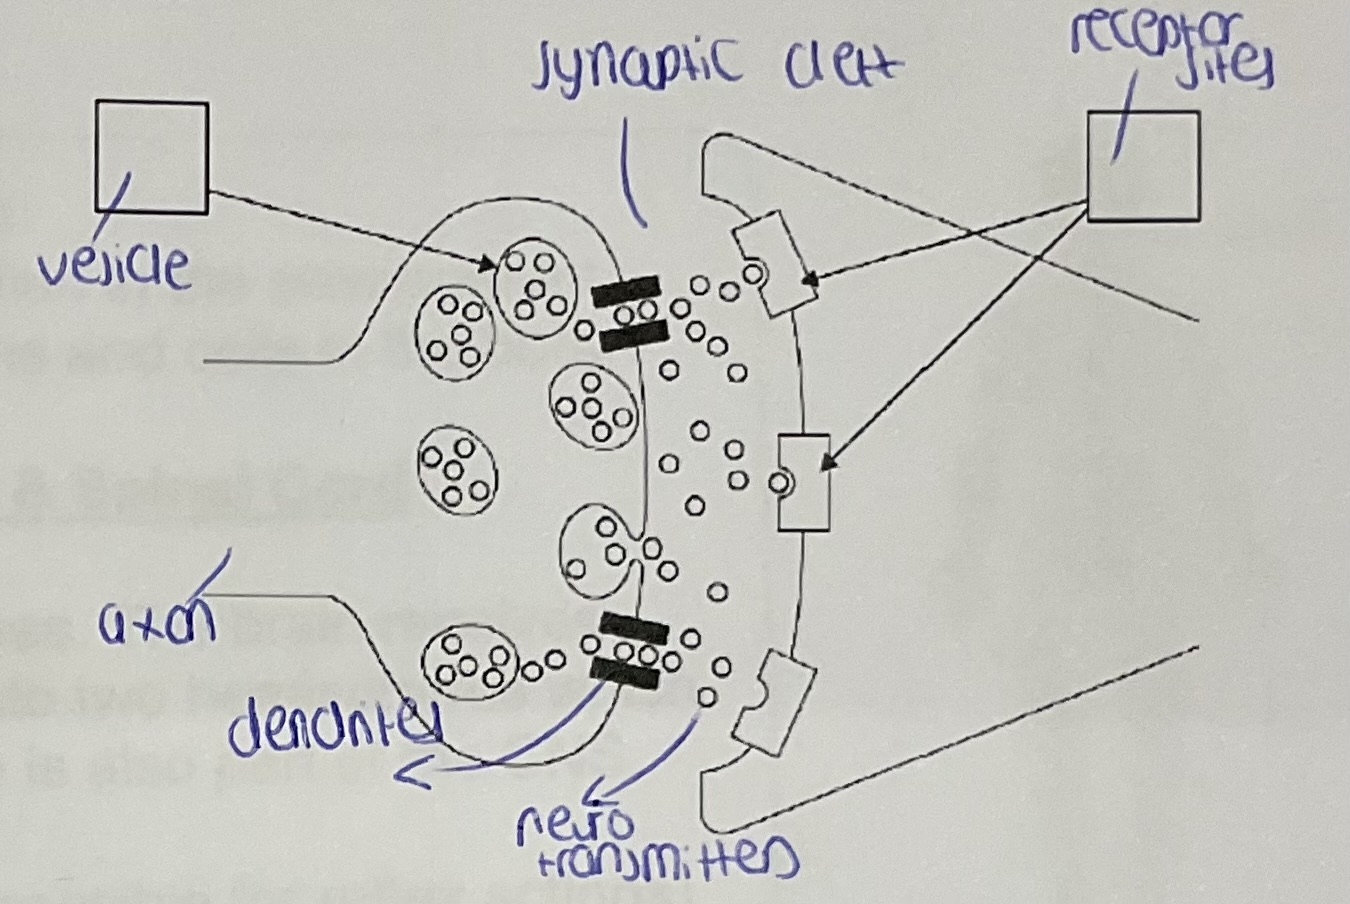 synaptic cleft
receptor
sites
vesicle
axon
dendrites
neuro
transmitters
& Spinal Cord